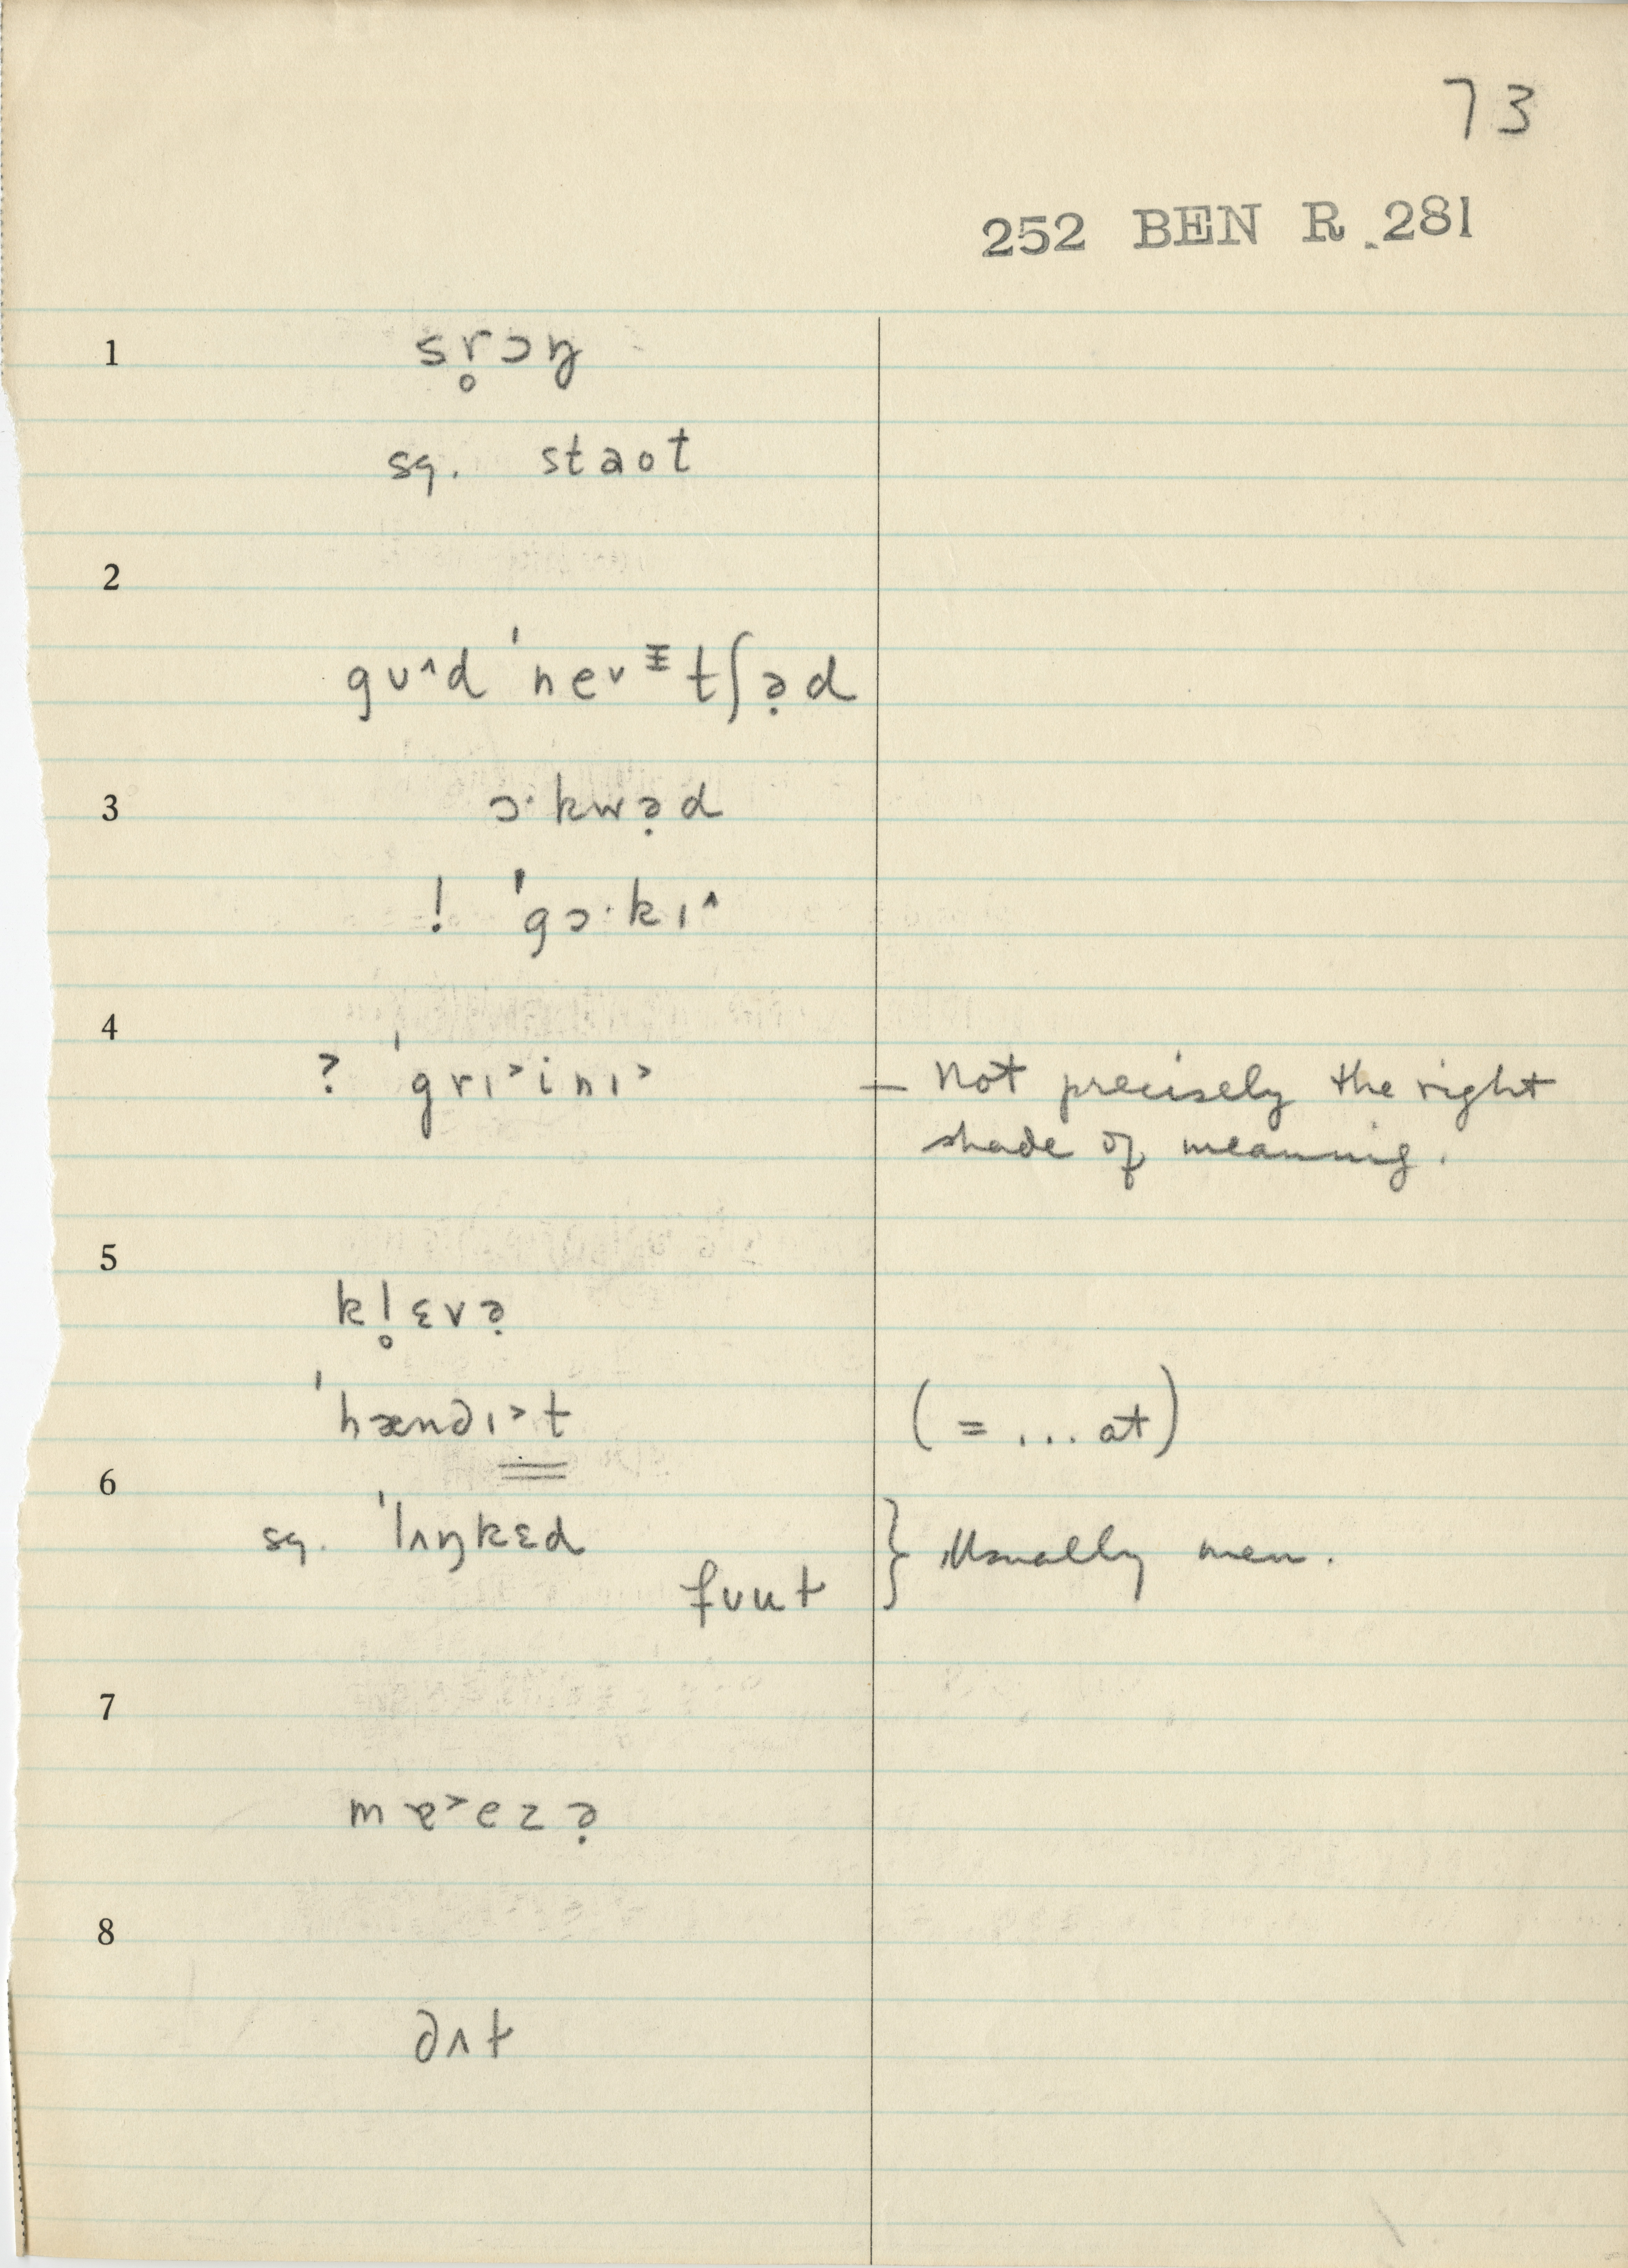 73
252 BEN R. 281
1 sr̥ɔŋ
sq. staot
2
gʊ^d ˈneɪvᵻtʃə̣d
3 ɔ·kwə̣d
! ˈgɔ·kɪ^
4
? ˈgrɪ˃inɪ˃ — Not precisely the right
shade of meaning.
5
kl̥ɛvə̣
ˈhændɪ˃t (= ... at)
6
sq. ˈlʌŋkɛd } Usually men.
fʊut
7
mɐ˃ezə̣
8
∂ʌt